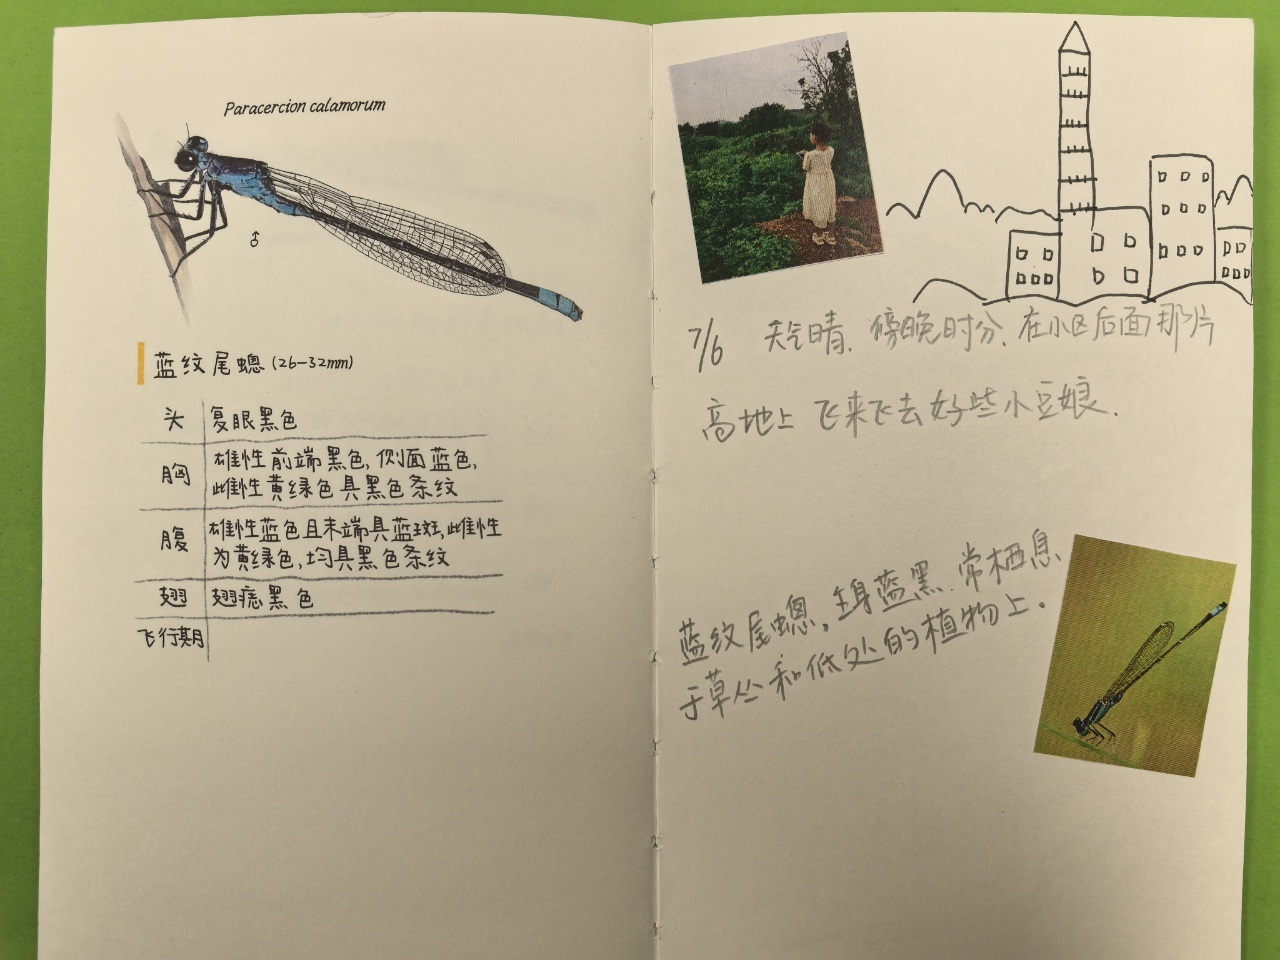 Paracercion calamorum
♂
蓝纹尾蟌 (26-32mm)
头 复眼黑色
胸 雄性前端黑色,侧面蓝色,
雌性黄绿色具黑色条纹
腹 雄性蓝色且末端具蓝斑,雌性
为黄绿色,均具黑色条纹
翅 翅痣黑色
飞行期
7/6 天气晴、傍晚时分、在小区后面那片
高地上飞来飞去好些小豆娘.
蓝纹尾蟌,全身蓝黑、常栖息、
于草丛和低处的植物上。